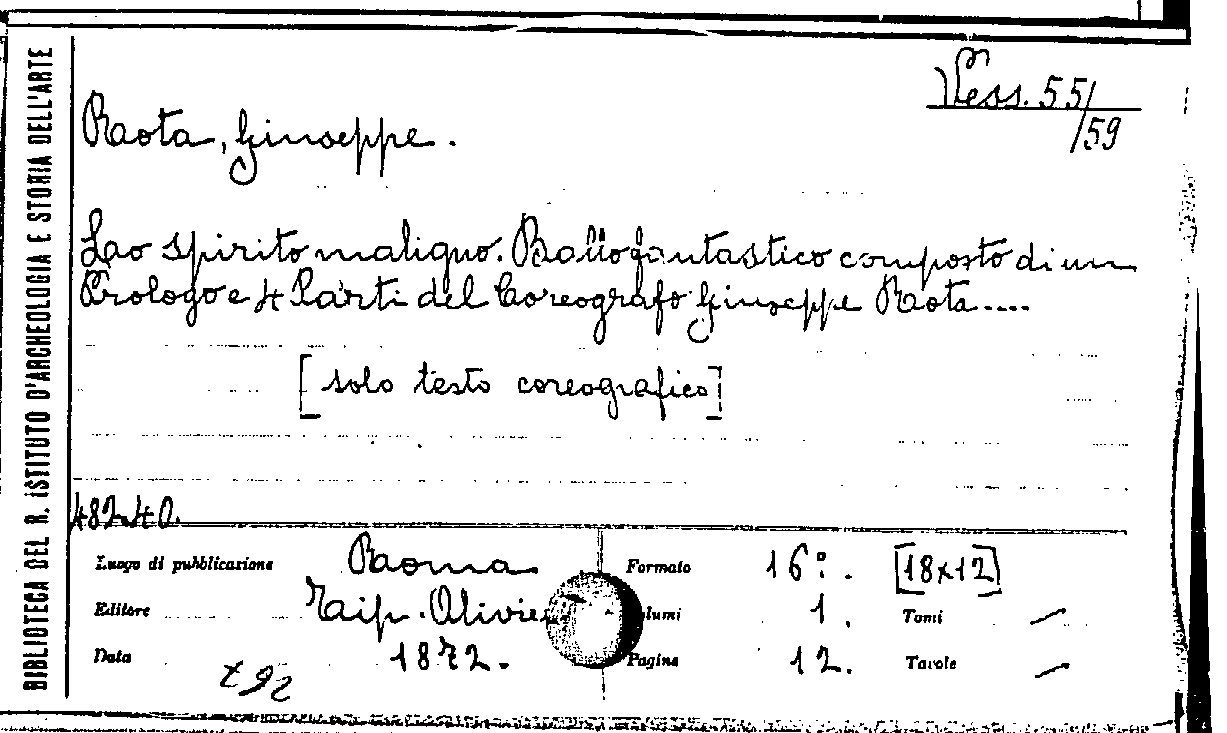 BIBLIOTECA DEL R. ISTITUTO D'ARCHEOLOGIA E STORIA DELL'ARTE
Vess. 55/
/59
Rota, Giuseppe.
Lo spirito maligno. Ballo fantastico composto di un
Prologo e 4 Parti del Coreografo Giuseppe Rota.....
[solo testo coreografico]
48240.
Luogo di pubblicazione Roma Formato 16°. [18x12]
Editore Tip. Olivie lumi 1. Tomi —
Data 1872. Pagine 12. Tavole —